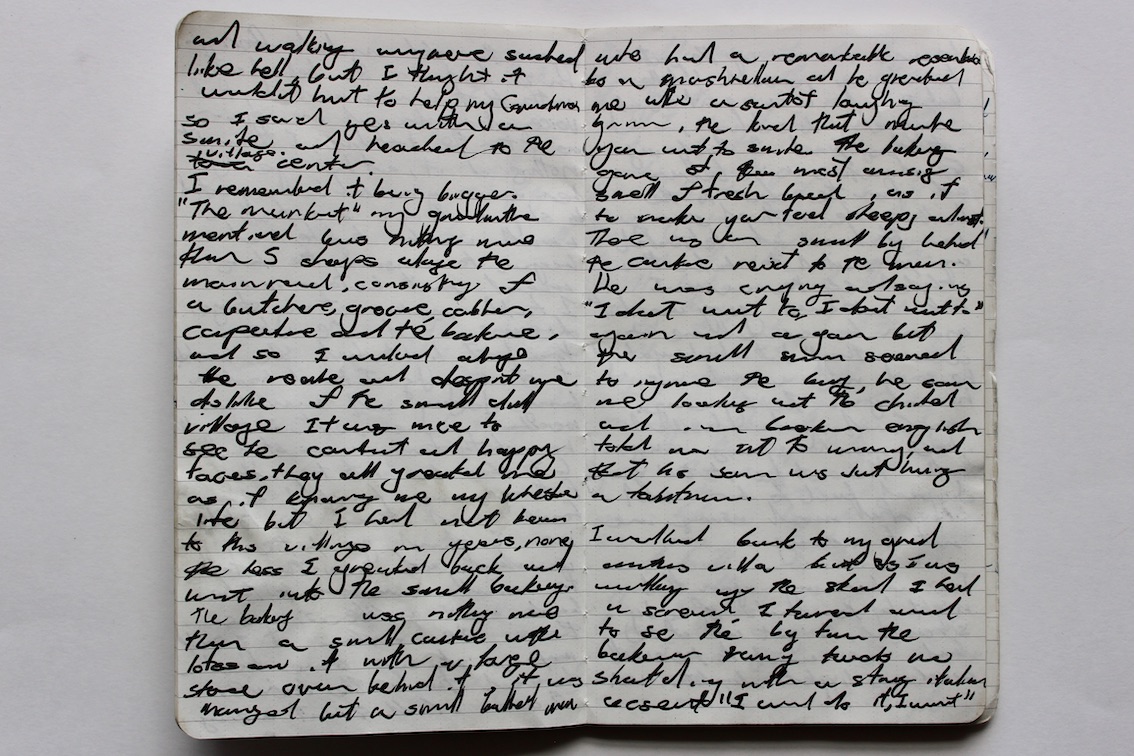 and walking anywhere sucked
like hell, but I thught it
wouldn't hurt to help my Grandma
so I said yes with a
smile and headed to the
village center.
I remembered it being bigger.
"The market" my grandmother
mentioned was nothing more
than 5 shops along the
main road, consisting of
a butchers, grocer, cobbler,
carpenter and the bakers.
and so I walked along
the route and despite my
dislike of the small dull
village It was nice to
see the content and happy
faces, they all greeted me
as if knowing me my whole
life but I had not been
to this village in years, none
the less I greeted back and
went into the small bakery.
The bakery was nothing more
than a small counter with
on it with a large
stone oven behind it, it was
manged but a small man
who had a remarkable resemblance
to a and he greeted
me with a sort of laughing
, the kind that made
you want to smile. The bakery
gave of the most amazing
smell of fresh bread, as if
to make you feel sleepy almost.
There was a small boy behind
the counter next to the man.
He was crying and saying
"I don't want to, I don't want to"
again and again but
the small man seemed
to ignore the boy, he saw
me looking at the child
and in broken english
told me not to worry, and
that his son was just having
a tantrum.
I walked back to my grand
mothers villa but as I was
walking up the I had
a scream, I turned around
to se the boy from the
bakery runing towards me
shouting with a strong italian
accsent "I want do it, I wont"